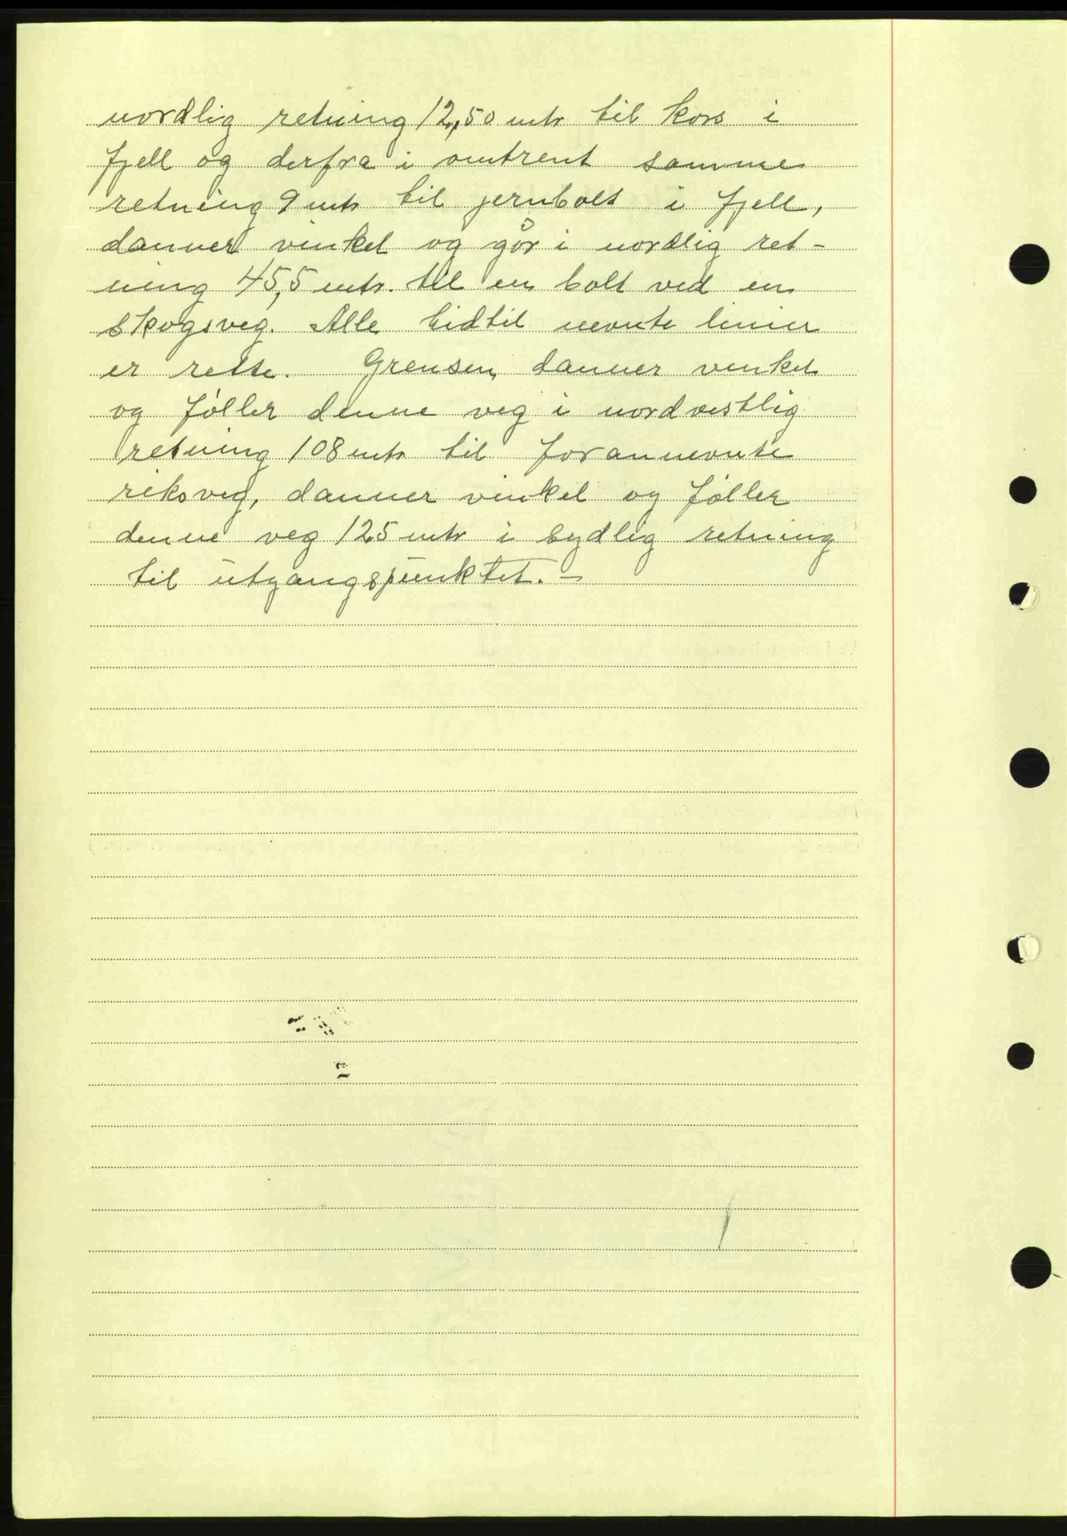 nordlig retning 12,50 mtr til kors i
fjell og derfra i omtrent samme
retning 9 mtr til jernbolt i fjell,
danner vinkel og går i nordlig ret-
ning 45,5 mtr. til en bolt ved en
skogsveg. Alle hidtil nevnte linier
er rette. Grensen danner vinkel
og føller denne veg i nordvestlig
retning 108 mtr til forannevnte
riksveg, danner vinkel og føller
denne veg 125 mtr i sydlig retning
til utgangspunktet. –